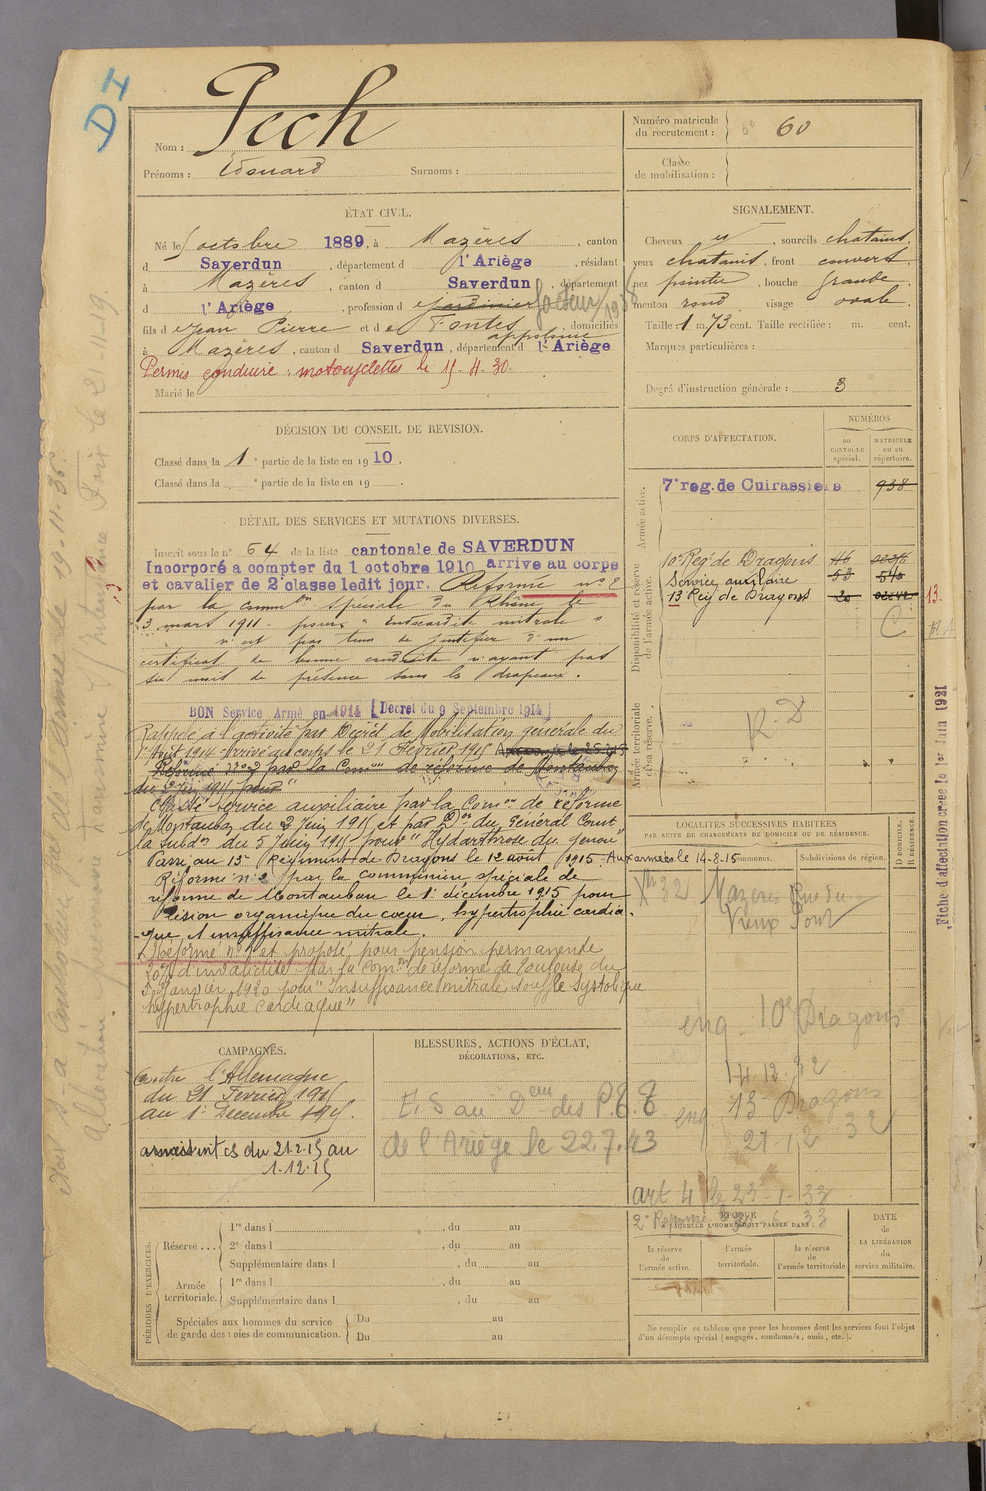 D I
Nom : Pech
Prénoms : Edouard Surnoms :
Numéro matricule
du recrutement : 60
Classe
de mobilisation :
ÉTAT CIVIL.
Né le 5 octobre 1889, à Mazères, canton
d Saverdun, département d l'Ariège, résidant
à Mazères, canton d Saverdun, département
d l'Ariège, profession d jardinier facteur 1938
fils d e Jean Pierre et d e Fontes appolonie, domiciliés
à Mazères, canton d Saverdun, département d l'Ariège
Permis conduire : motocyclettes le 15.4.30.
Marié le
SIGNALEMENT.
Cheveux et, sourcils chatains.
yeux chatains, front couvert
nez pointu, bouche grande
menton rond visage ovale.
Taille 1 m. 73 cent. Taille rectifiée : m. cent.
Marques particulières :
Degré d'instruction générale : 3
DÉCISION DU CONSEIL DE REVISION.
Classé dans la 1e partie de la liste en 1910.
Classé dans la e partie de la liste en 19 .
DÉTAIL DES SERVICES ET MUTATIONS DIVERSES.
Inscrit sous le n° 64 de la liste cantonale de SAVERDUN
Incorporé a compter du 1 octobre 1910 arrive au corps
et cavalier de 2e classe ledit jour. Réformé n° 2
par la comm on spéciale du Rhône le
3 mars 1911 - pour " Endocardite mitrale "
n'est pas tenu de justifier d'un
certificat de bonne conduite n'ayant pas
six mois de présence sous les drapeaux.
BON Service Armé en 1914 [Decret du 9 Septembre 1914]
Rappelé à l'activité par Décret de Mobilisation générale du
1er Août 1914. Arrivé au corps le 21 Février 1915
Réformé n° 2 par la Com on de réforme de Montauban
du 2 Juin 1915 pour "
Classé service auxiliaire par la Com on de réforme
de Montauban du 2 Juin 1915 et par D on du Général Comt
la Subd on du 5 Juin 1915 pour "Hydarthrose du genou"
Passé au 13e Régiment de Dragons le 12 août 1915 - Aux armées le 14-8-15
Réformé n° 2 par la commission spéciale de
réforme de Montauban le 1er décembre 1915 pour
lésion organique du cœur, hypertrophie cardia-
que, et insuffisance mitrale.
Réformé n° 1 et proposé pour pension permanente
20% d'invalidité par la Com on de réforme de Toulouse du
5 Janvier 1920 pour "Insuffisance mitrale, souffle systolique
hypertrophie cardiaque"
CORPS D'AFFECTATION.
NUMÉROS
AU CONTRÔLE spécial.
MATRICULE ou au répertoire.
Armée active.
7e reg. de Cuirassiers 938
Disponibilité et réserve de l'armée active.
10e Regt de Dragons 46
Service auxiliaire 53 546
13 Reg de Dragons 20
C
13
Armée territoriale et sa réserve.
R. D
Fiche d'affectation créée le 1er Juin 1921
LOCALITÉS SUCCESSIVES HABITÉES
PAR SUITE DE CHANGEMENTS DE DOMICILE OU DE RÉSIDENCE.
Communes. Subdivisions de région. D DOMICILE. R RÉSIDENCE.
Xbre 32 Mazères Rue du
Vieux Pont
eng - 10e Dragons
14.12.32
eng 13e Dragons
21-12 32
art 4 le 23-1-33
CAMPAGNES.
Contre l'Allemagne
du 21 Février 1915
au 1er Décembre 1915.
du 21.2.15 au
1.12.15
BLESSURES, ACTIONS D'ÉCLAT,
DÉCORATIONS, ETC.
E.S au D em des P.T.T
de l'Ariège le 22.7.43
PÉRIODES D'EXERCICES.
Réserve ...
1re dans l , du au
2e dans l , du au
Supplémentaire dans l , du au
Armée territoriale.
1re dans l , du au
Supplémentaire dans l , du au
Spéciales aux hommes du service
de garde des voies de communication.
Du au
Du au
ÉPOQUE
À LAQUELLE L'HOMME DOIT PASSER DANS :
la réserve de l'armée active.
l'armée territoriale.
la réserve de l'armée territoriale
DATE DE LA LIBÉRATION du service militaire.
Ne remplir ce tableau que pour les hommes dont les services font l'objet
d'un décompte spécial (engagés, condamnés, omis, etc.).